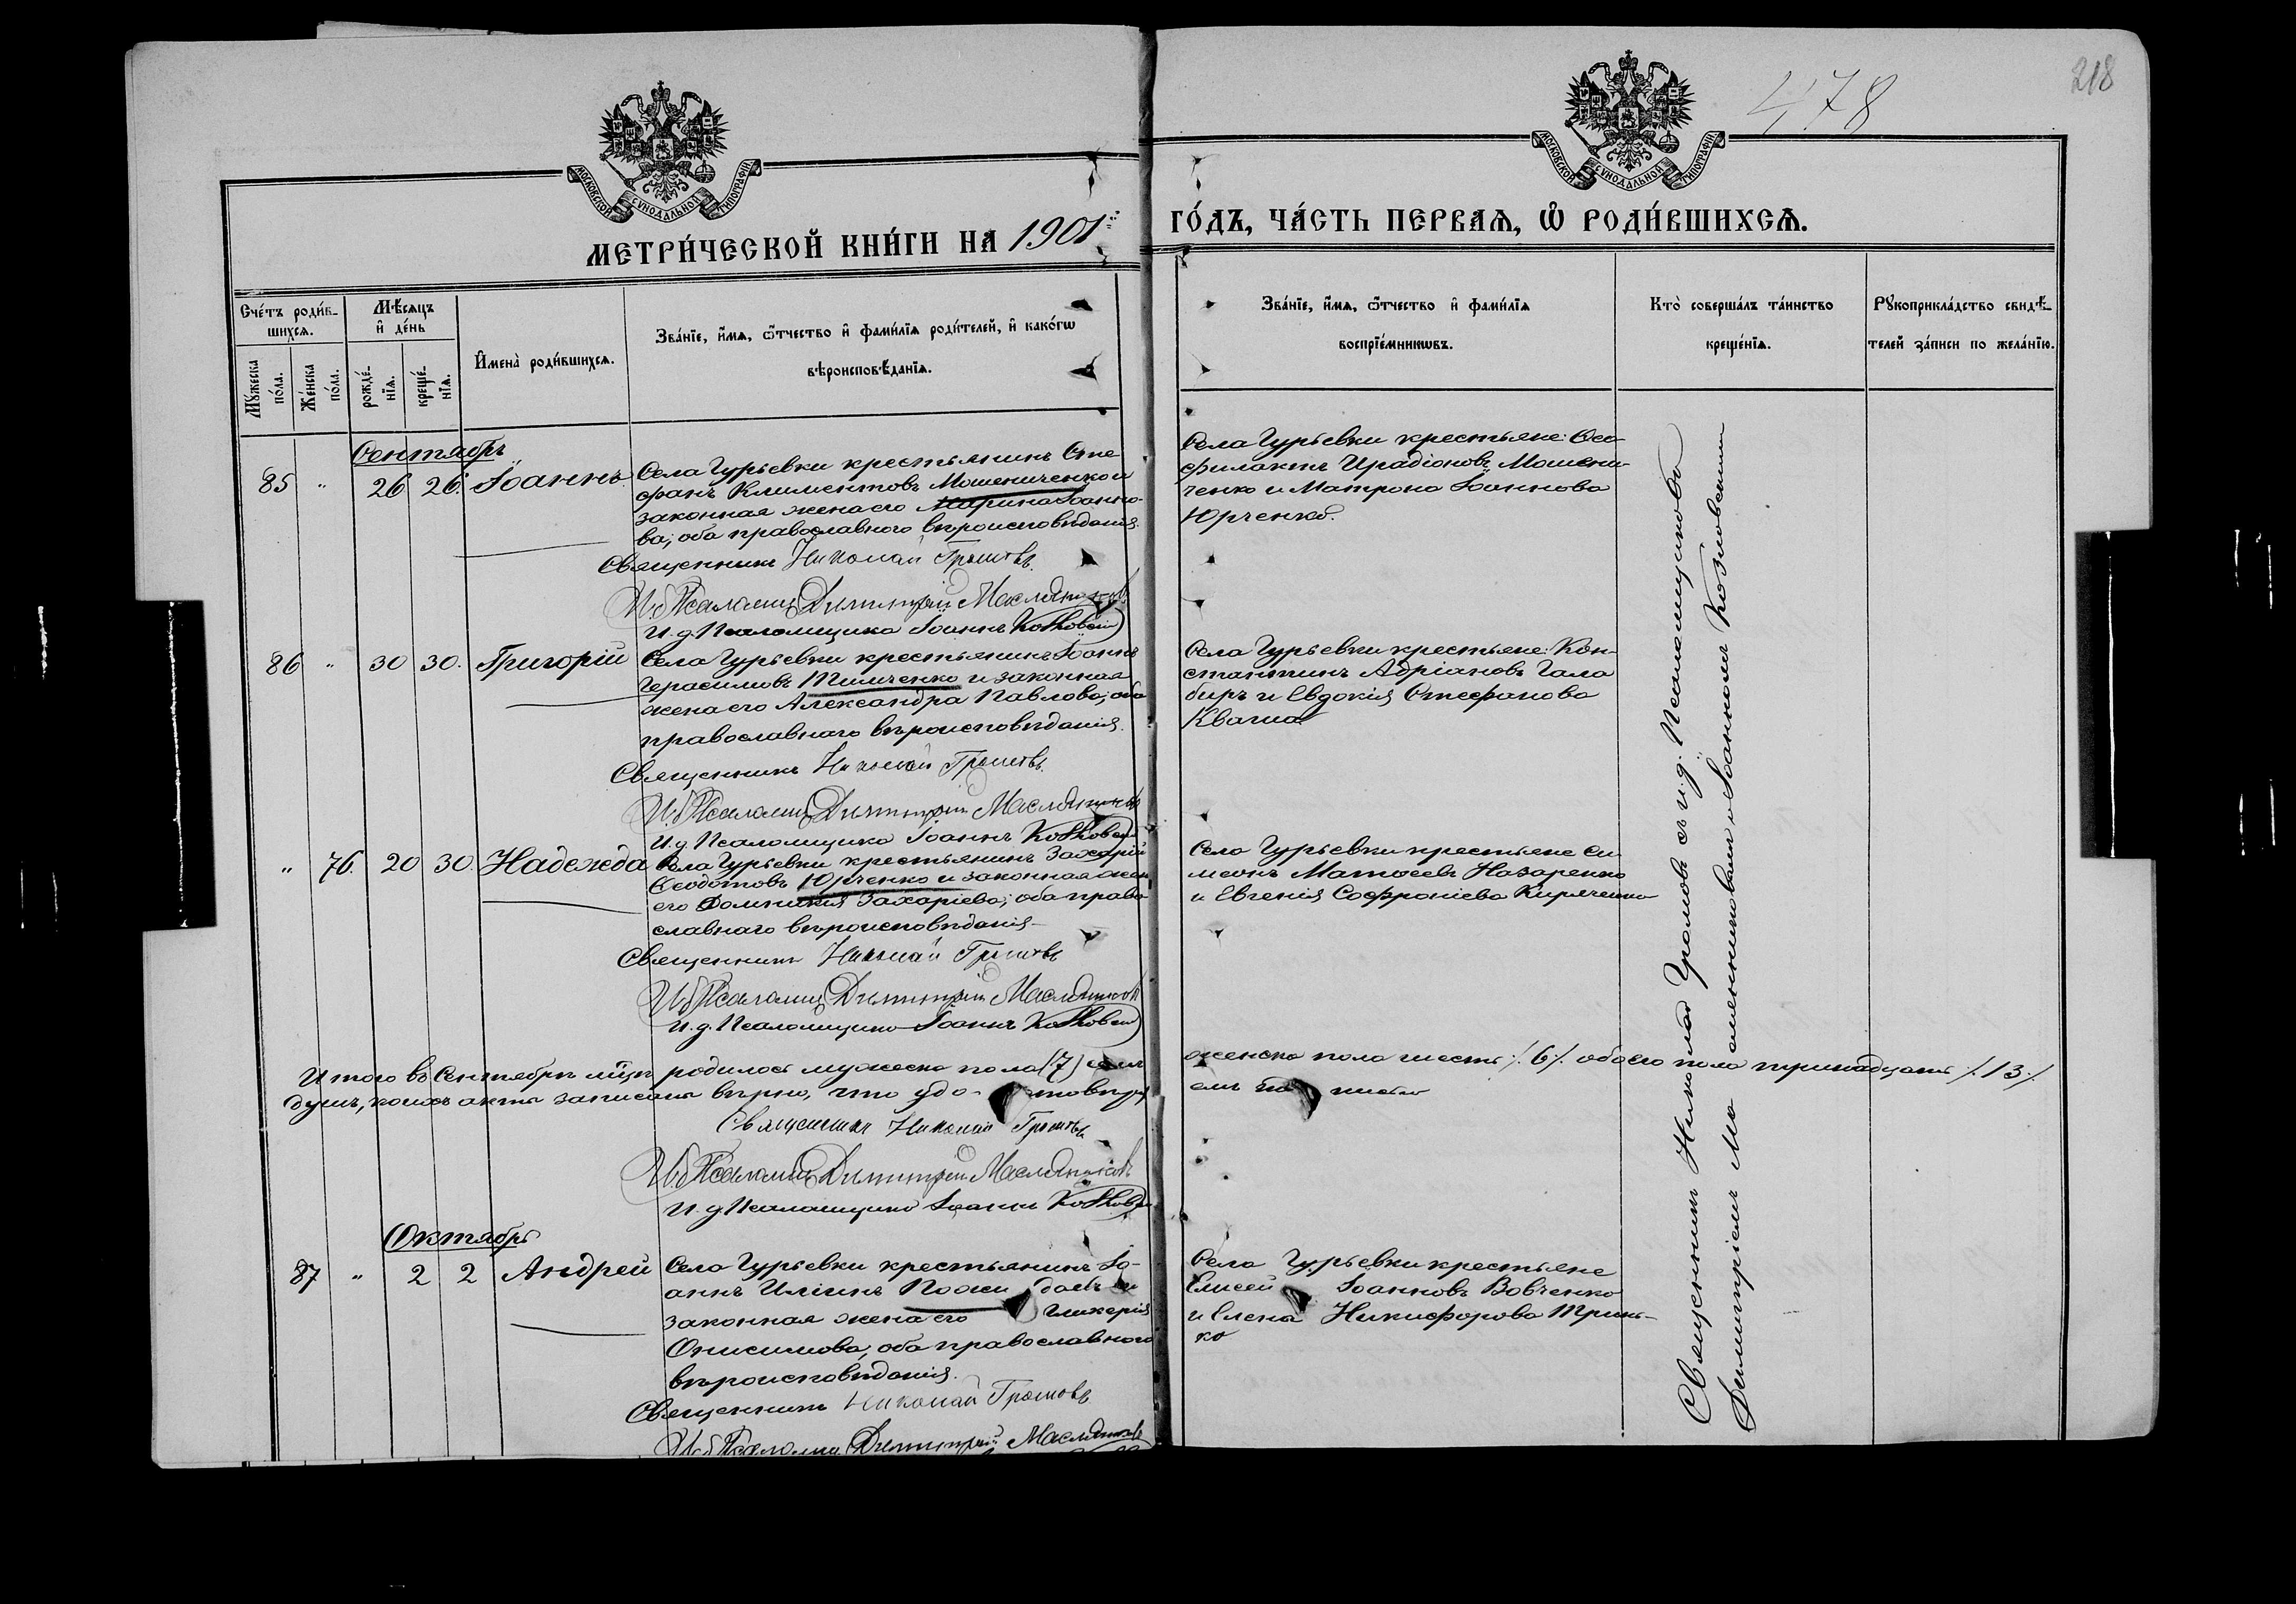 478
218
МОСКОВСКОЙ СѴНОДАЛЬНОЙ ТИПОГРАФІИ
МОСКОВСКОЙ СѴНОДАЛЬНОЙ ТИПОГРАФІИ
МЕТРИ́ЧЕСКОЙ КНИ́ГИ НА 1901 ГО́ДЪ, ЧА́СТЬ ПЕРВАЯ, Ѡ РОДИ́ВШИХСЯ.
Сче́тъ роди́в-
шихся.
Мѣ́сяцъ
и҆ де́нь
Мꙋ́жеска
по́ла.
Же́нска
по́ла.
рожде́-
нїя.
креще́-
нїя.
И҆мена̀ роди́вшихся.
Зва́нїе, и҆́мя, ѻ҆́тчество и҆ фами́лїя роди́телей, и҆ како́гѡ
вѣроисповѣ́данїя.
Зва́нїе, и҆́мя, ѻ҆́тчество и҆ фами́лїя
воспрїе́мникѡвъ.
Кто̀ соверша́лъ та́инство
креще́нїя.
Рꙋкоприкла́дство свидѣ́-
телей за́писи по жела́нїю.
Сентябрь
85 " 26 26. Іоаннъ
Села Гурьевки крестьянинъ Сте
фанъ Климентовъ Мошениченко и
законная жена его Марина Іоанно-
ва; оба православнаго вѣроисповѣданія.
Священникъ Николай Громовъ.
И.д. Псаломщ. Димитрій Масляников
И.д. Псаломщика Іоаннъ
Села Гурьевки крестьяне: Ѳео-
филактъ Иродіоновъ Мошени-
ченко и Матрона Іоаннова
Юрченкова
86 " 30 30. Григорій
Села Гурьевки крестьянинъ Іоаннъ
Герасимовъ Тимченко и законная
жена его Александра Павлова; оба
православнаго вѣроисповѣданія.
Священникъ Николай Громовъ.
И.д. Псаломщ. Димитрій Масляников
И.д. Псаломщика Іоаннъ
Села Гурьевки крестьяне: Кон-
стантинъ Адріановъ Гала
биръ и Евдокія Стефанова
Кваша
" 76. 20 30. Надежда
Села Гурьевки крестьянинъ Захарій
Ѳеодотовъ Юрченко и законная жена
его Домникія Захаріева; оба право
славнаго вѣроисповѣданія
Священникъ Николай Громовъ
И.д. Псаломщ. Димитрій Масляников
И.д. Псаломщика Іоаннъ
Села Гурьевки крестьяне Си
меонъ Матѳеевъ Назаренко
и Евгенія Софроніева Кириченко
Итого въ Сентябрѣ мѣцѣ родилось мужеска пола (7) семь женска пола шесть /.6/. обоего пола тринадцать /.13./
душъ, коихъ акты записаны вѣрно, что удо-стовѣря емъ
Священникъ Николай Громовъ
И.д. Псаломщ. Димитрій Масляников
И.д. Псаломщика Іоаннъ
Октябрь
87 " 2 2 Андрей
Села Гурьевки крестьянинъ Іо-
аннъ Иліинъ и
законная жена его Гликерія
Онисимова, оба православнаго
вѣроисповѣданія.
Священникъ Николай Громовъ
И.д. Псаломщ. Димитрій Масляников
Села Гурьевки крестьяне
Елисей Іоанновъ Вовченко
и Елена Никифорова Тринь-
ко
Священникъ Николай Громовъ съ и.д. Псаломщиковъ
Димитріемъ Масляниковымъ и Іоанномъ Козловскимъ